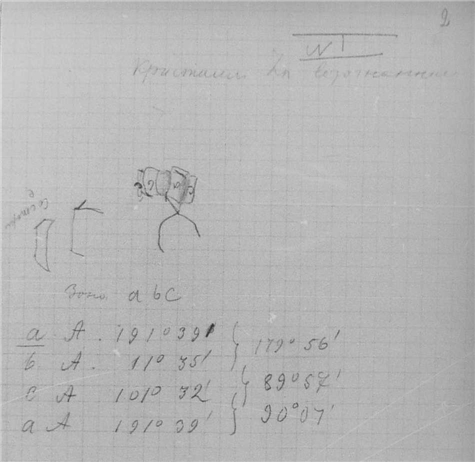 2
N I
Кристаллы Zn
Зона abc
a A. 191° 39' } 179° 56'
b A. 11° 35'
c A 101° 32' } 89° 57'
a A 191° 39' } 90° 07'